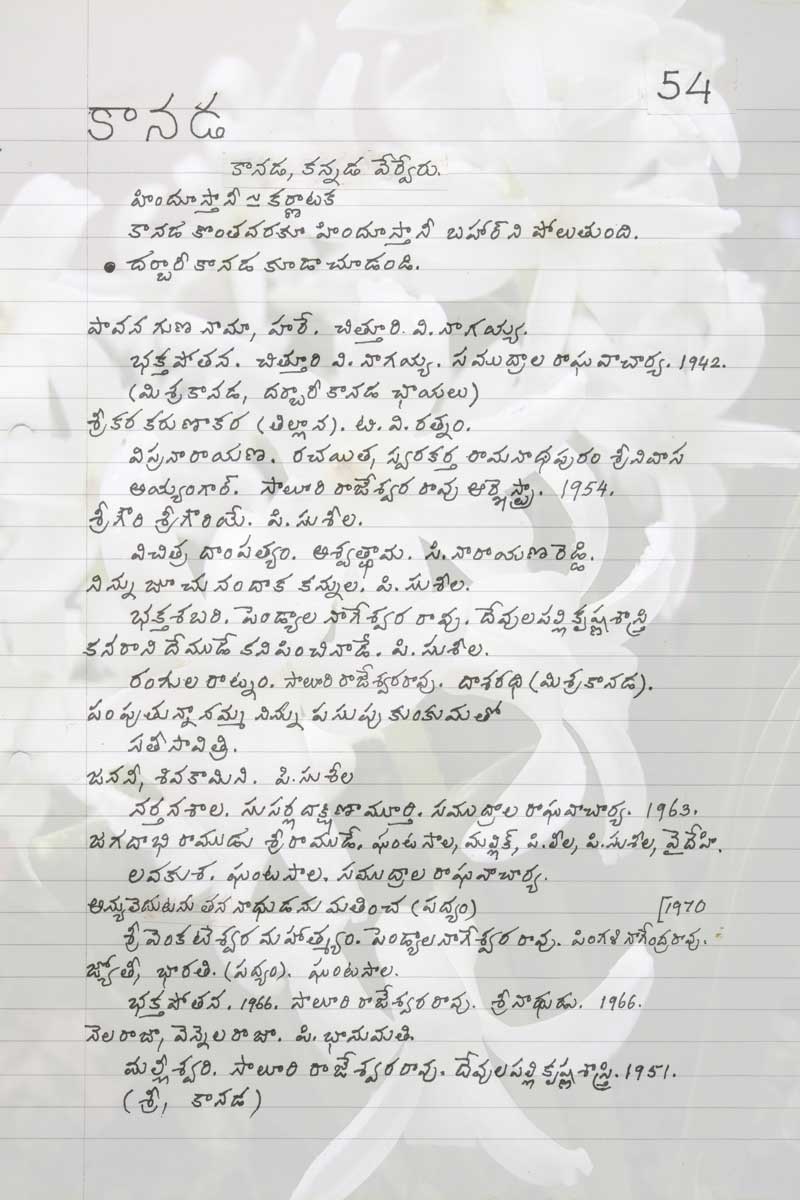 54
కానడ
కానడ, కన్నడ వేర్వేరు.
హిందూస్తానీ ≃ కర్ణాటక
కానడ కొంతవరకూ హిందూస్తానీ బహార్‌ని పోలుతుంది.
• దర్బారీ కానడ కూడా చూడండి.
పావన గుణ నామా, హరే. చిత్తూరి. వి. నాగయ్య.
భక్తపోతన. చిత్తూరి వి. నాగయ్య. సముద్రాల రాఘవాచార్య. 1942.
(మిశ్రకానడ, దర్బారీ కానడ ఛాయలు)
శ్రీకర కరుణాకర (తిల్లాన). టి. వి. రత్నం.
విప్రనారాయణ. రచయిత, స్వరకర్త రామనాథపురం శ్రీనివాస
అయ్యంగార్. సాలూరి రాజేశ్వర రావు ఆర్కెస్ట్రా. 1954.
శ్రీగౌరి శ్రీగౌరియే. పి. సుశీల.
విచిత్ర దాంపత్యం. అశ్వత్థామ. సి. నారాయణ రెడ్డి.
నిన్ను జూచునందాక కన్నుల. పి. సుశీల.
భక్తశబరి. పెండ్యాల నాగేశ్వర రావు. దేవులపల్లి కృష్ణశాస్త్రి
కనరాని దేముడే కనిపించినాడే. పి. సుశీల.
రంగుల రాట్నం. సాలూరి రాజేశ్వరరావు. దాశరథి (మిశ్రకానడ).
పంపుతున్నానమ్మ నిన్ను పసుపు కుంకుమతో
సతీ సావిత్రి.
జననీ, శివకామిని. పి. సుశీల
నర్తనశాల. సుసర్ల దక్షిణామూర్తి. సముద్రాల రాఘవాచార్య. 1963.
జగదాభి రాముడు శ్రీరాముడే. ఘంటసాల, మల్లిక్, పి. లీల, పి. సుశీల, వైదేహి.
లవకుశ. ఘంటసాల. సముద్రాల రాఘవాచార్య.
అన్యువెదుటను తన నాథుడను మతించ (పద్యం) [1970
శ్రీ వెంకటేశ్వర మహాత్మ్యం. పెండ్యాల నాగేశ్వర రావు. పింగళి నాగేంద్రరావు.
జ్యోతీ, భారతి. (పద్యం). ఘంటసాల.
భక్తపోతన. 1966. సాలూరి రాజేశ్వర రావు. శ్రీనాథుడు. 1966.
నెలరాజా, వెన్నెలరాజా. పి. భానుమతి.
మల్లీశ్వరి. సాలూరి రాజేశ్వరరావు. దేవులపల్లి కృష్ణశాస్త్రి. 1951.
(శ్రీ, కానడ)